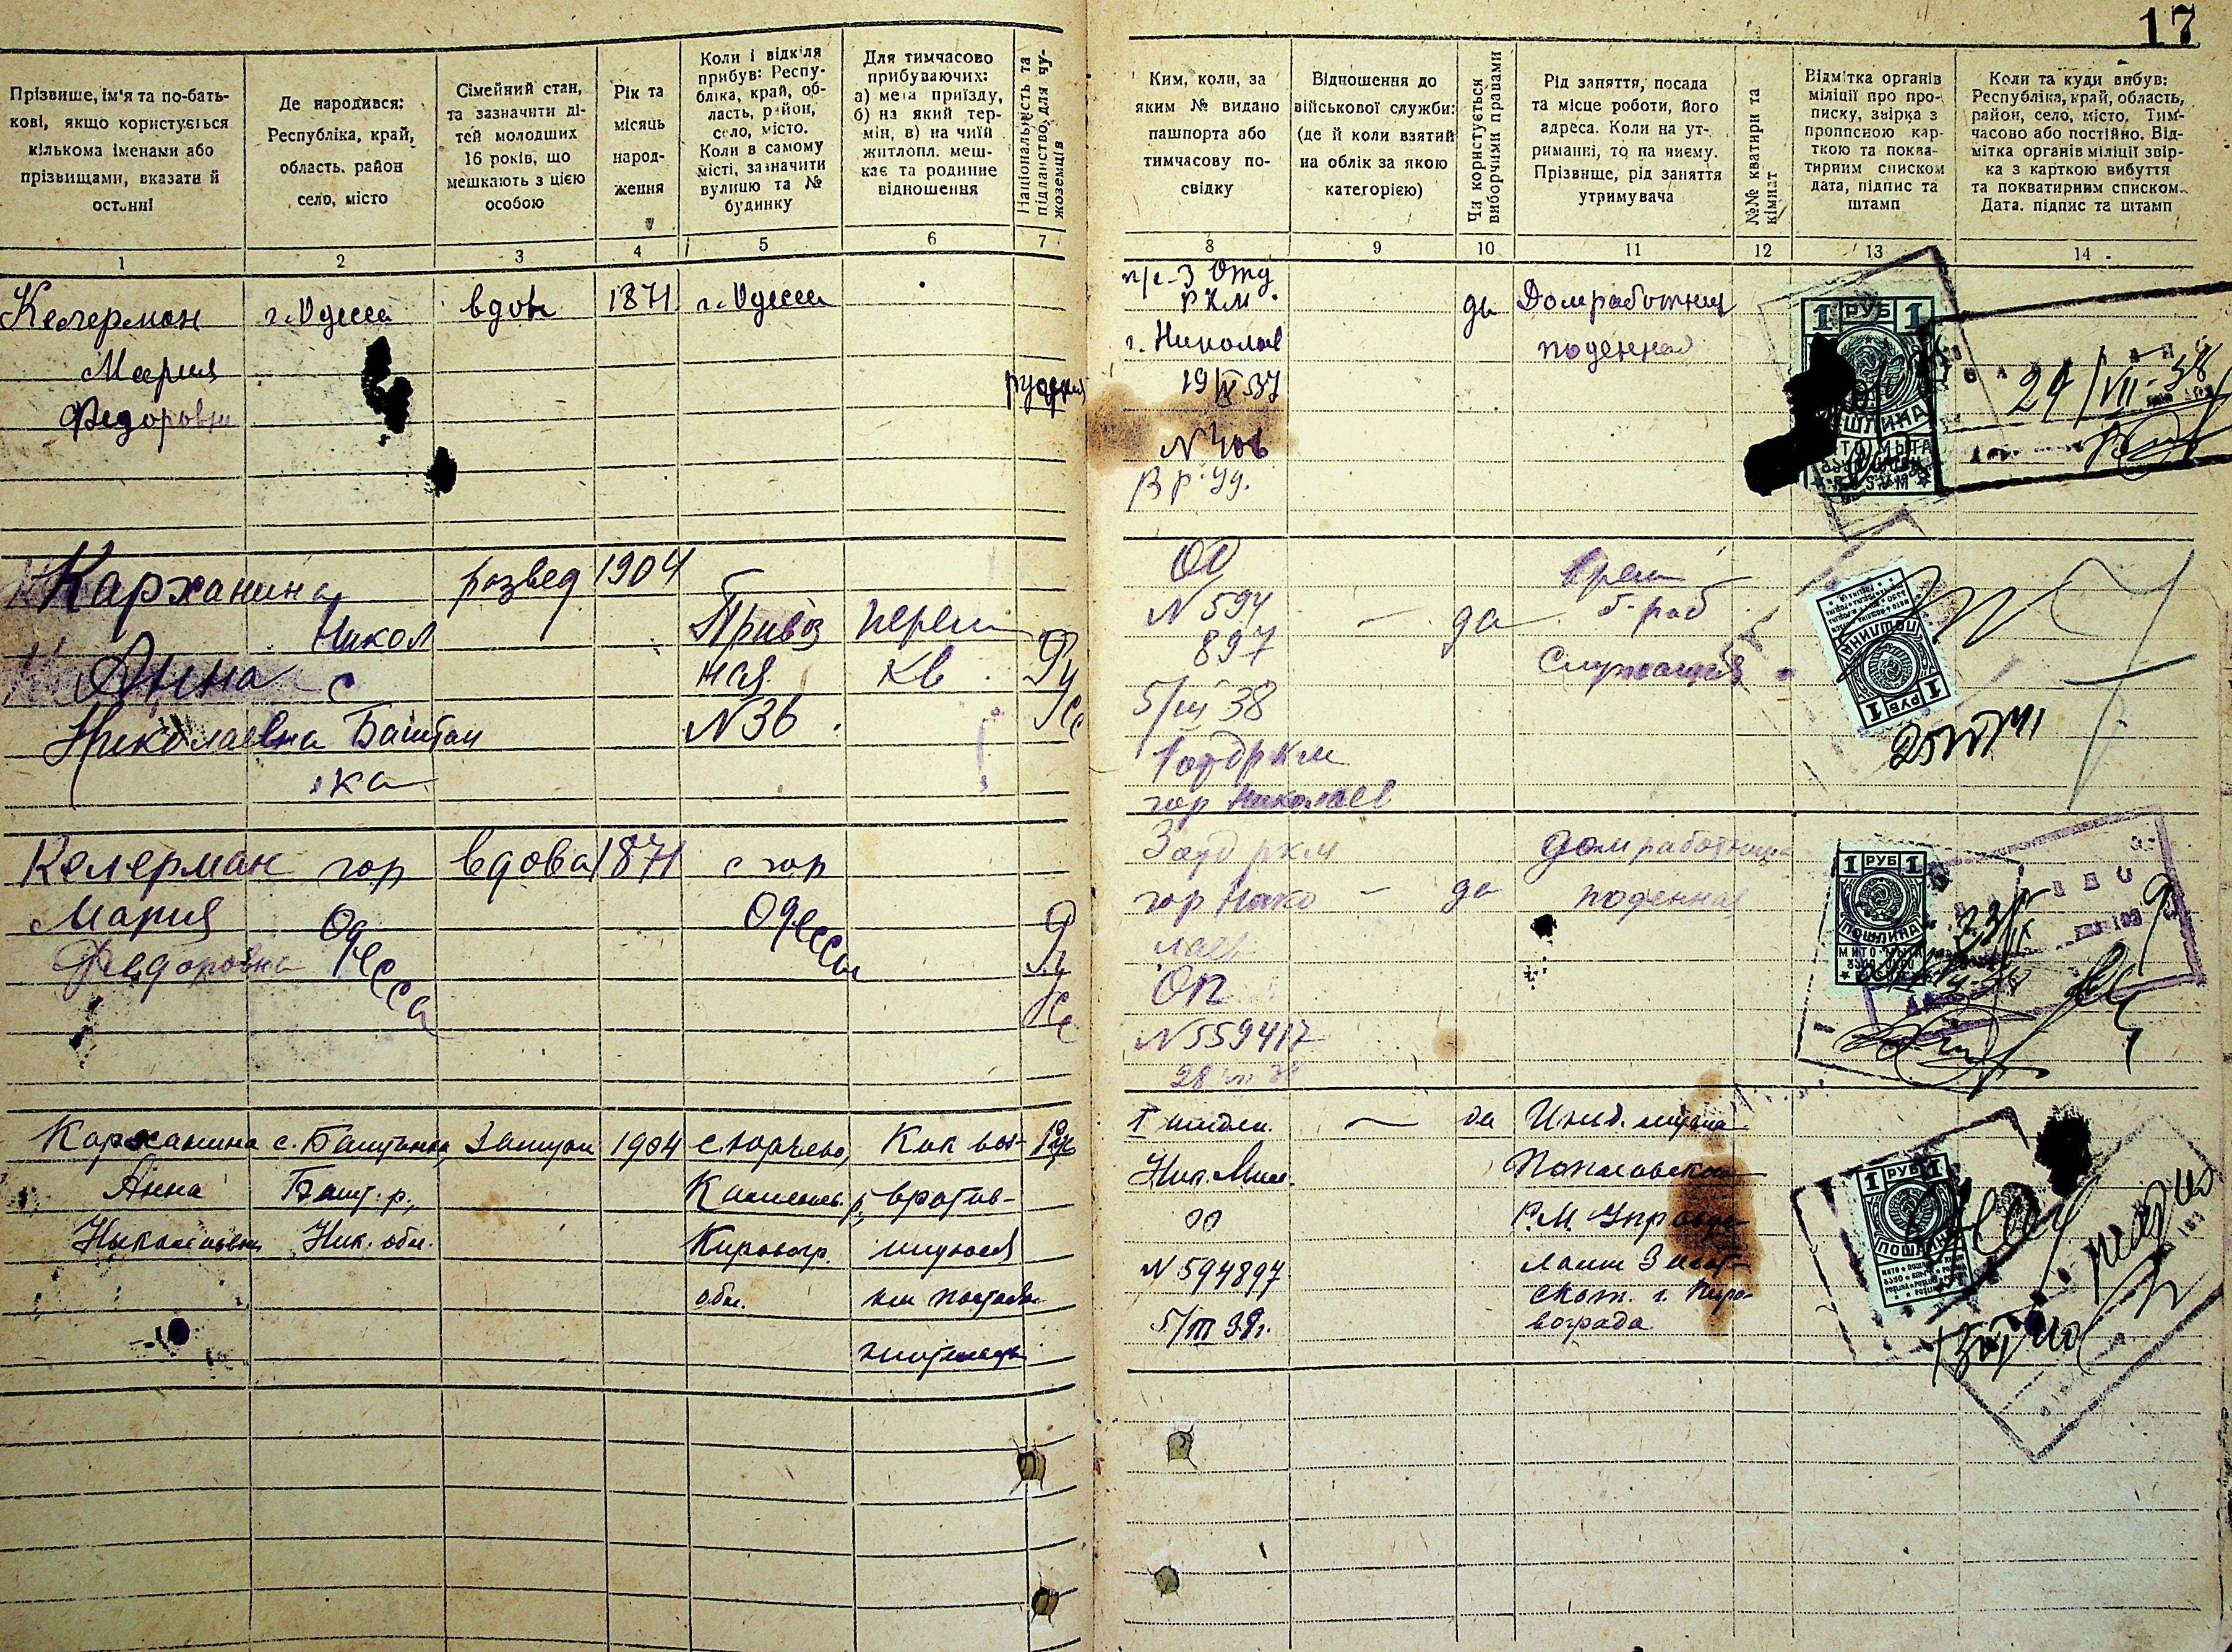 17
Прізвище, ім'я та по-бать-
кові, якщо користується
кількома іменами або
прізвищами, вказати й
останні
Де народився:
Республіка, край,
область. район
село, місто
Сімейний стан,
та зазначити ді-
тей молодших
16 років, що
мешкають з цією
особою
Рік та
місяць
народ-
ження
Коли і відкіля
прибув: Респу-
бліка, край, об-
ласть, район,
село, місто.
Коли в самому
місті, зазначити
вулицю та №
будинку
Для тимчасово
прибуваючих:
а) мета приїзду,
б) на який тер-
мін, в) на чиїй
житлопл. меш-
кає та родинне
відношення
Національність та
підданство для чу-
жоземців
Ким, коли, за
яким № видано
пашпорта або
тимчасову по-
свідку
Відношення до
військової служби:
(де й коли взятий
на облік за якою
категорією)
Чи користується
виборчими правами
Рід заняття, посада
та місце роботи, його
адреса. Коли на ут-
риманні, то на чиєму.
Прізвище, рід заняття
утримувача
№№ кватири та
кімнат
Відмітка органів
міліції про про-
писку, звірка з
прописною кар-
ткою та поква-
тирним списком
дата, підпис та
штамп
Коли та куди вибув:
Республіка, край, область,
район, село, місто, Тим-
часово або постійно. Від-
мітка органів міліції звір-
ка з карткою вибуття
та покватирним списком.
Дата. підпис та штамп
1 2 3 4 5 6 7 8 9 10 11 12 13 14
Келерман
Мария
Федоровна
г. Одесса
вдова
1871
г. Одесса
русская
РКМ
г. Николаев
19/IV 37
да
Домработница
поденная
1 РУБ 1
ПОШЛИНА
29/VII-38
Карханина
Анна
Николаевна
Никол
с
Баштан
ка
развед
1904
Привоз
ная
N 36
перем
кв
Ру
сс
ОО
N 594
897
5/III 38
1 отд ркм
гор Николаев
—
да
врем
б-раб
Служащая
1 РУБ 1
ПОШЛИНА
Келерман
Мария
Федоровна
гор
Од
есса
вдова
1871
с гор
Одессы
Ру
сс
3 отд ркм
гор Нико
лаев
ОП
N 559417
—
да
домработница
поденная
1 РУБ 1
ПОШЛИНА
МИТО-МЫТА
Карханина
Анна
Николаевна
с. Баштанка,
Башт. р.,
Ник. обл.
Замуж
1904
с. Юрьево,
Кировогр.
обл.
Как воз-
вратив-
шуюся
на постоян.
жительство
Рус
Ник. Мил.
ОО
N 594897
5/III 38г.
—
да
Инд. мужа
1 РУБ 1
ПОШЛИНА